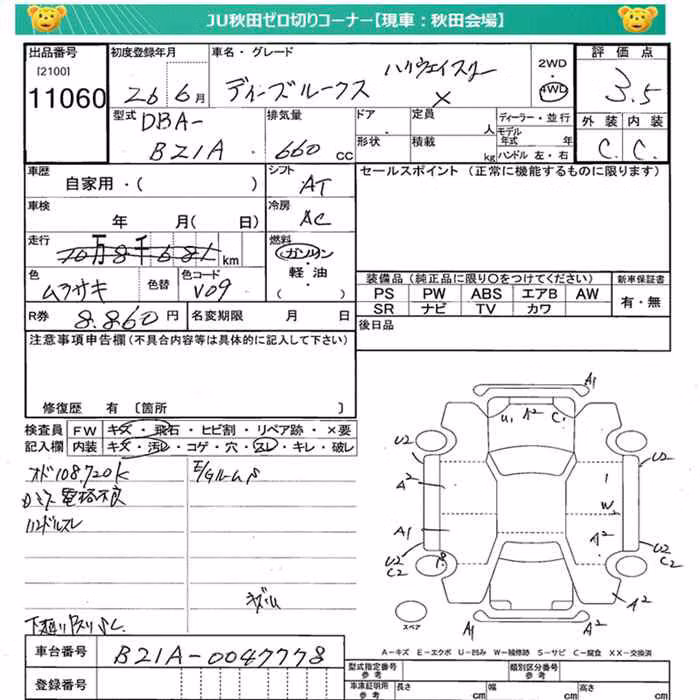 JU秋田ゼロ切りコーナー【現車:秋田会場】
出品番号 初度登録年月 車名・グレード 2WD・4WD 評価点
[2100]
11060 26 6月 ディーズルークス ハイウェイスター X 3.5
型式 DBA-B21A 排気量 660cc ドア 定員 人 ディーラー・並行 外装 内装
形状 積載 kg モデル年式 年 ハンドル 左・右 C. C.
車歴 シフト セールスポイント(正常に機能するものに限ります)
自家用・( ) AT
車検 冷房
年 月(日) AC
走行 燃料
10万8千681km ガソリン
軽油・( )
色 色替 色コード
ムラサキ V09
装備品(純正品に限り〇をつけてください) 新車保証書
PS PW ABS エアB AW 有・無
SR ナビ TV カワ
R券 8.860円 名変期限 月 日 後日品
注意事項申告欄(不具合内容等は具体的に記入して下さい)
修復歴 有〔箇所 〕
検査員 FW キズ・飛石・ヒビ割・リペア跡・×要
記入欄 内装 キズ・汚レ・コゲ・穴・スレ・キレ・破レ
オド108.720K E/GルームS
ハンドルスレ
A1
U1 A2 C1
U2 U2
A2 1
W2
A1 A2
U2 U2
C2 P. C2
A2 A2
スペア A1
A-キズ E-エクボ U-凹み W-補修跡 S-サビ C-腐食 XX-交換済
車台番号 B21A-0047778
型式指定番号 参考 類別区分番号 参考
登録番号 車凍証明用 参考 長さ cm 幅 cm 高さ cm